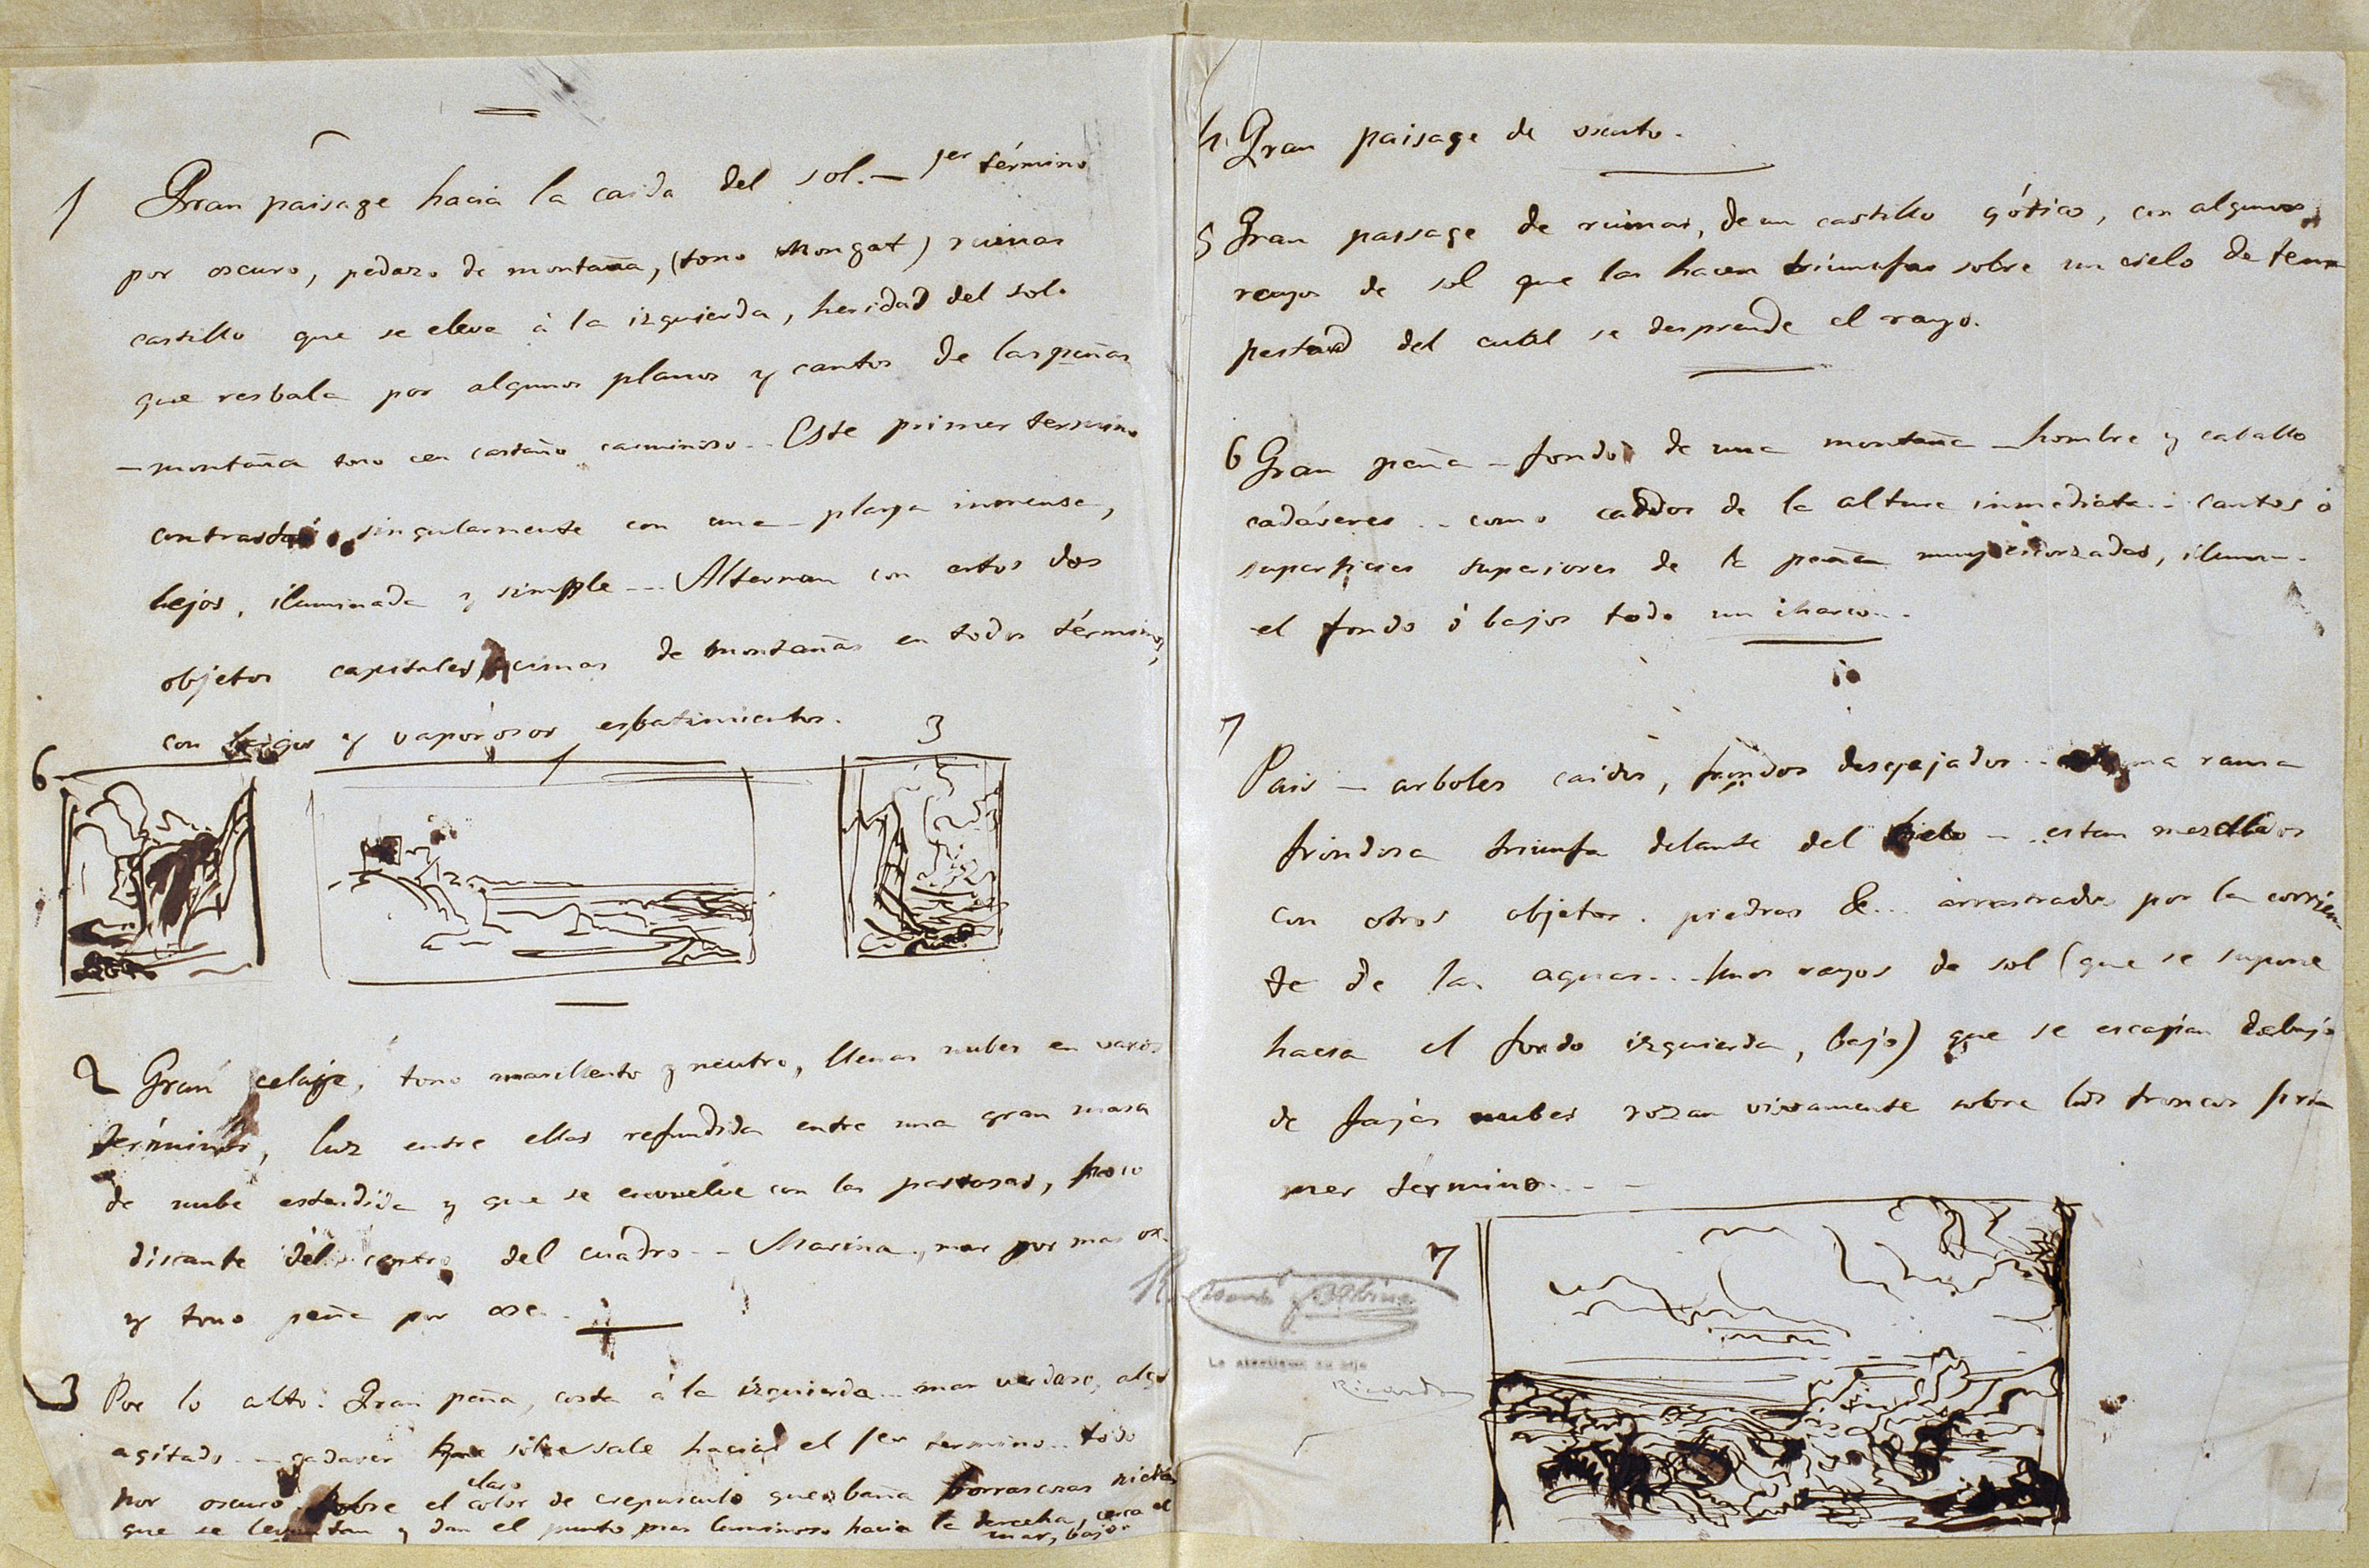 1 Gran paisage hacia la caida del sol. — 1er término
por oscuro, pedazo de montaña, (tono Mongat) ruinas
castillo que se eleva à la izquierda, heridad del sol.
que resbala por algunos planos y cantos de las peñas
— montaña tono en castaño carminoso.. Este primer termino
contrasta singularmente con una playa inmensa,
lejos, iluminada y simple --- Alternan con estos dos
objetos capitales, cimas de montañas en todos términos,
con y vaporosos esbatimientos.
6 1 3
2 Gran celaje, tono amarillento y neutro, llenas nubes en varios
términos, luz entre ellas refundida entre una gran masa
de nube estendida y que se envuelve con las pastosas, poco
discante del centro del cuadro -- Marina, mar por mas os.
y tono peña por osc.
3 Por lo alto. Gran peña, costa á la izquierda... mar verdaso, algo
agitado -- cadaver que sobresale hacia el 1er termino.. todo
por oscuro sobre el claro color de crepusculo que baña borrascosas nieblas
que se levantan y dan el punto mas luminoso hacia la derecha, cerca el
mar, bajo.
4. Gran paisage de
5 Gran paisage de ruinas, de un castillo gótico, con algunos
rayos de sol que las hacen triumfar sobre un cielo de tem
pestad del cual se desprende el rayo.
6 Gran peña — fondo de una montaña — hombre y caballo
cadáveres .. como caidos de la altura inmediata .. cantos ó
superficies superiores de la peña muy esforzadas, ilumin.
el fondo ó bajos todo un charco..
7
Pais — arboles caidos, fondos despejados .. una rama
frondosa triunfa delante del cielo — estan mezclados
con otros objetos. piedras &... arrastrados por la corrien
te de las aguas... Unos rayos de sol (que se supone
hacia el fondo izquierda, bajo) que se escapan debajo
de fajas nubes rozan vivamente sobre los troncos pri
mer término...
7
Ricardo